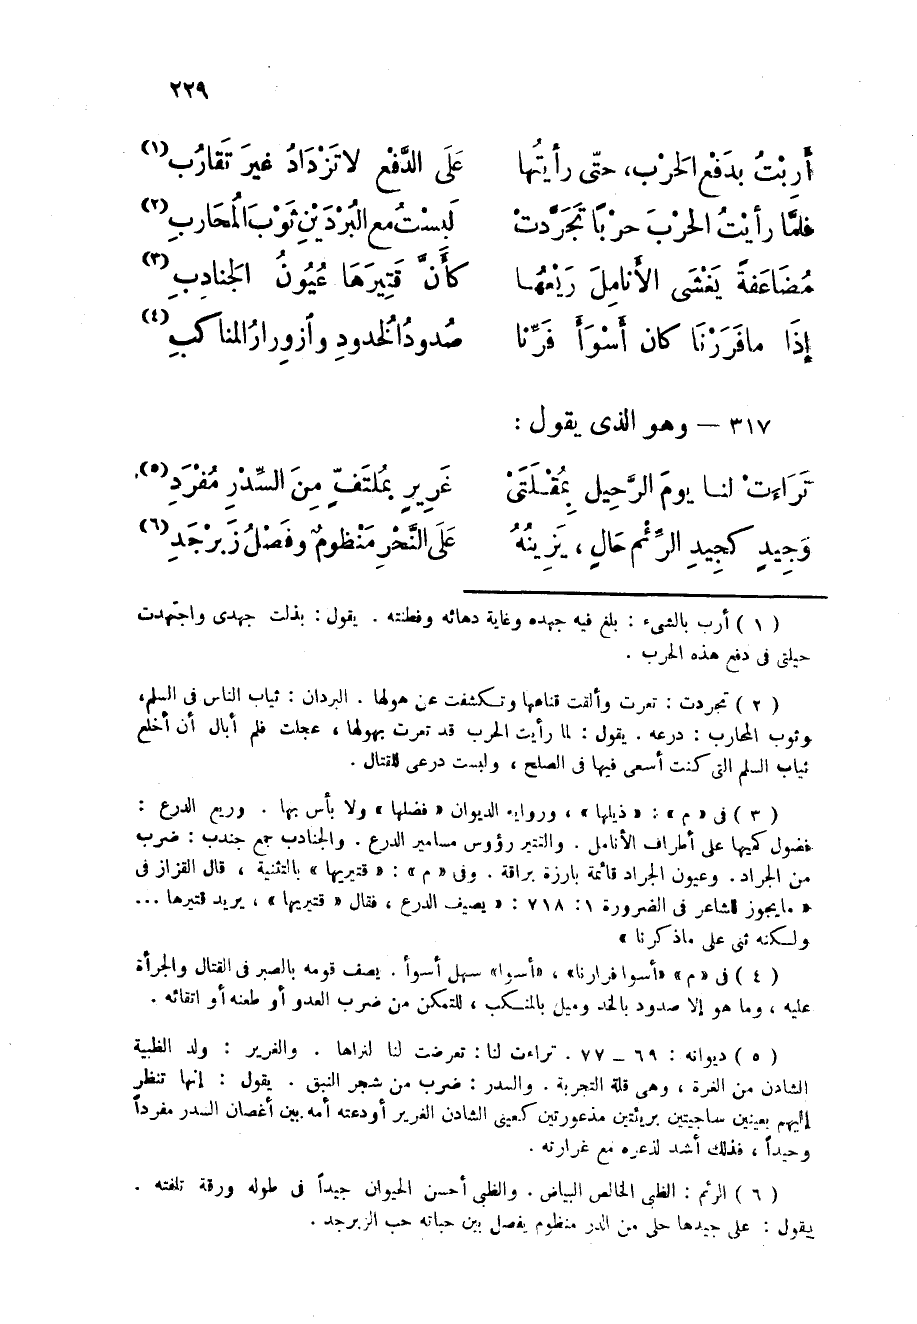 ٢٢٩
أَرِبْتُ بدَفْعِ الحَرْبِ، حتّى رأيتُها عَلَى الدَّفْعِ لا تَزْدَادُ غيرَ تَقَارُبِ(١)
فلمَّا رأيْتُ الحَرْبَ حرْبًا تَجَرَّدتْ لَبِسْتُ مع البُرْدَيْنِ ثَوْبَ المُحَاربِ(٢)
مُضَاعَفةً يَغْشَى الأنامِلَ رَيْعُهَا كأنَّ قَتِيرَهَا عُيُونُ الجَنادِبِ(٣)
إذَا ما فَرَرْنَا كان أَسْوَأَ فَرِّنا صُدودُ الخدودِ وازورارُ المناكبِ(٤)
٣١٧ – وهو الذى يقول :
تَرَاءتْ لنا يومَ الرَّحيلِ بمُقْلَتَىْ غَرِيرٍ بمُلتَفٍّ مِنَ السِّدْرِ مُفْرَدِ(٥)
وَجِيدٍ كجِيدِ الرِّئْمِ حَالٍ ، يَزِينُهُ عَلَى النَّحْرِ مَنْظومٌ وفَصْلُ زَبَرْجَدِ(٦)
( ١ ) أرب بالشىء : بلغ فيه جهده وغاية دهائه وفطنته . يقول : بذلت جهدى واجتهدت
حيلتى فى دفع هذه الحرب .
( ٢ ) تجردت : تعرت وألقت قناعها وتكشفت عن هولها . البردان : ثياب الناس فى السلم،
وثوب المحارب : درعه . يقول : لما رأيت الحرب قد تعرت بهولها ، عجلت فلم أبال أن أخلع
ثياب السلم التى كنت أسعى فيها فى الصلح ، ولبست درعى للقتال .
( ٣ ) فى « م » : « ذيلها » ، ورواية الديوان « فضلها » ولا بأس بها . وريع الدرع :
فضول كميها على أطراف الأنامل . والقتير رؤوس مسامير الدرع . والجنادب جمع جندب : ضرب
من الجراد . وعيون الجراد قائمة بارزة براقة . وفى « م » : « قتيريها » بالتثنية ، قال القزاز فى
« ما يجوز للشاعر فى الضرورة ١ : ٧١٨ : « يصف الدرع ، فقال « قتيريها » ، يريد قتيرها ...
ولكنه ثنى على ما ذكرنا »
( ٤ ) فى « م » «أسوا فرارنا» ، «أسوا» سهل أسوأ . يصف قومه بالصبر فى القتال والجرأة
عليه ، وما هو إلا صدود بالخد وميل بالمنكب ، للتمكن من ضرب العدو أو طعنه أو اتقائه .
( ٥ ) ديوانه : ٦٩ – ٧٧ . تراءت لنا : تعرضت لنا لنراها . والغرير : ولد الظبية
الشادن من الغرة ، وهى قلة التجربة . والسدر : ضرب من شجر النبق . يقول : إنها تنظر
إليهم بعينين ساجيتين بريئتين مذعورتين كعينى الشادن الغرير أودعته أمه بين أغصان السدر مفرداً
وحيداً ، فذلك أشد لذعره مع غرارته .
( ٦ ) الرئم : الظبى الخالص البياض . والظبى أحسن الحيوان جيداً فى طوله ورقة تلفته .
يقول : على جيدها حلى من الدر منظوم يفصل بين حباته حب الزبرجد .